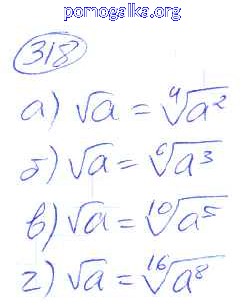 pomogalka.org
318
а) √a = ⁴√a²
б) √a = ⁶√a³
в) √a = ¹⁰√a⁵
г) √a = ¹⁶√a⁸